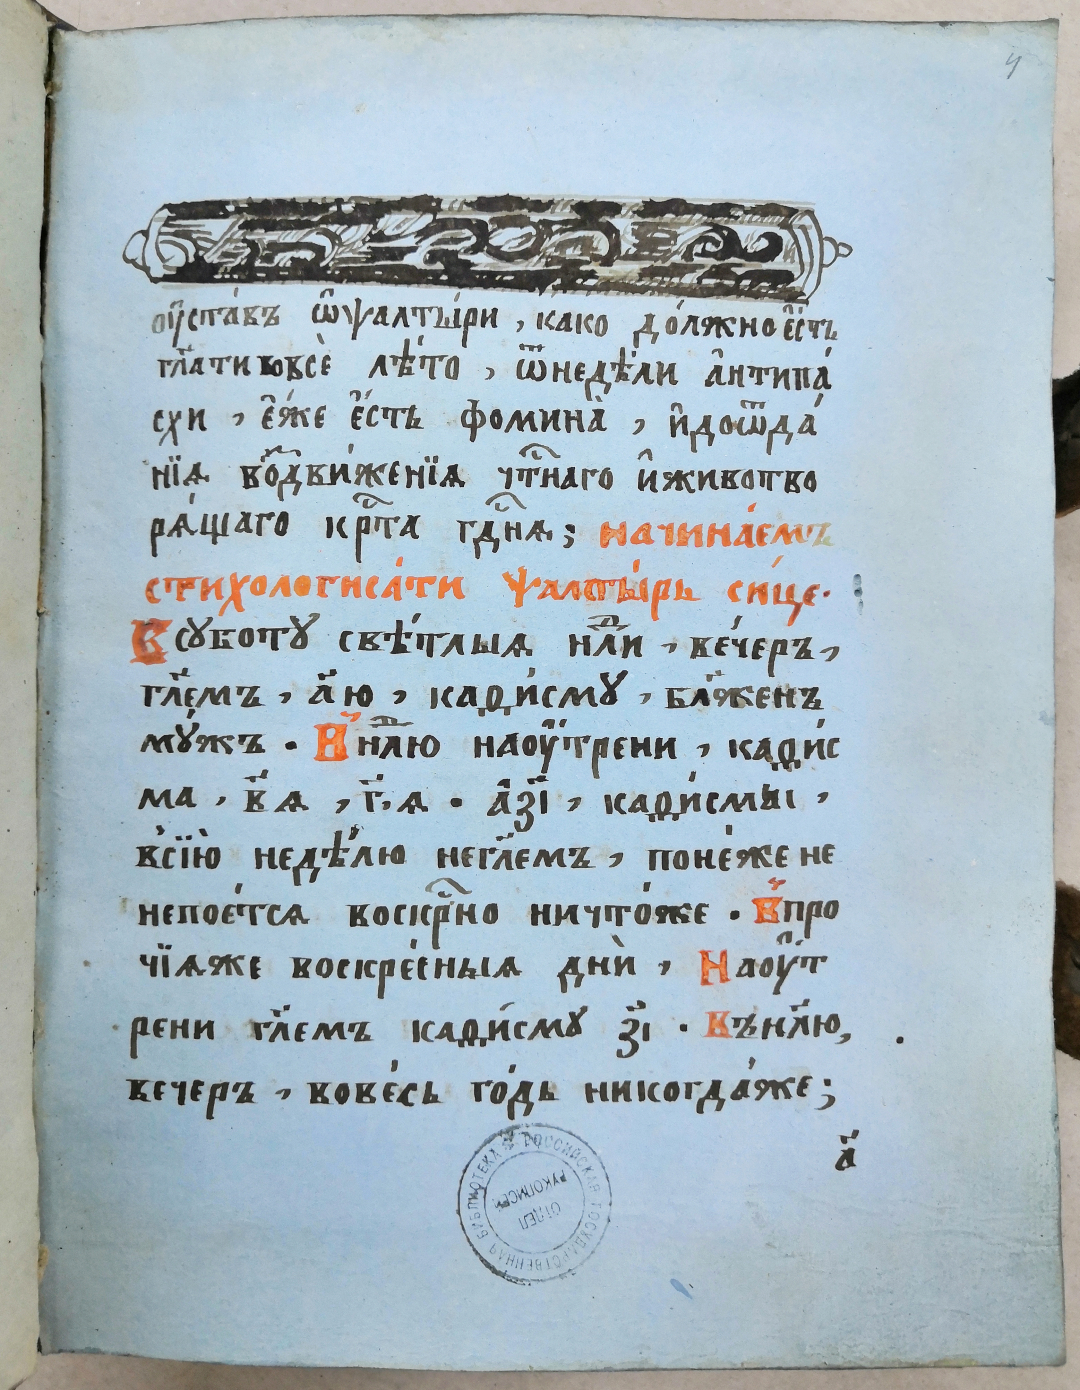 4
ᲂу҆ста́въ ѡ҆ѱалты́ри , како до́лжно є҆́сть
гл҃ати вовсѐ лѣ́то , ѿнедѣ́ли а҆нтипа́
схи , є҆́же є҆́сть фомина̀ , и҆доѿда́
нїѧ воз̾дви́женїѧ чⷭ҇тнаго и҆животво
рѧ́щаго крⷭ҇та гдⷭ҇нѧ ; начина́емъ
стихологиса́ти ѱалты́рь си́це .
Всꙋботꙋ свѣ́тлыѧ нлⷣи , ве́черъ ,
гл҃емъ , а҃ю , кади́смꙋ , бл҃женъ
мꙋ́жъ . Внлⷣю наᲂу҆́трени , кади́с
ма , в҃ѧ , г҃ѧ . а҆ з҃і , кади́смы ,
всїю̀ недѣ́лю негл҃емъ , поне́же не
непое́тсѧ воскрⷭ҇но ничто́же . Впро
чїѧже воскре́сныѧ днѝ , Наᲂу҆́т
рени гл҃емъ кади́смꙋ з҃і . Въ нлⷣю ,
вечеръ , вове́сь го́дъ никогда́же ;
а҃
РОССИЙСКАЯ ГОСУДАРСТВЕННАЯ БИБЛИОТЕКА
ОТДЕЛ
РУКОПИСЕЙ